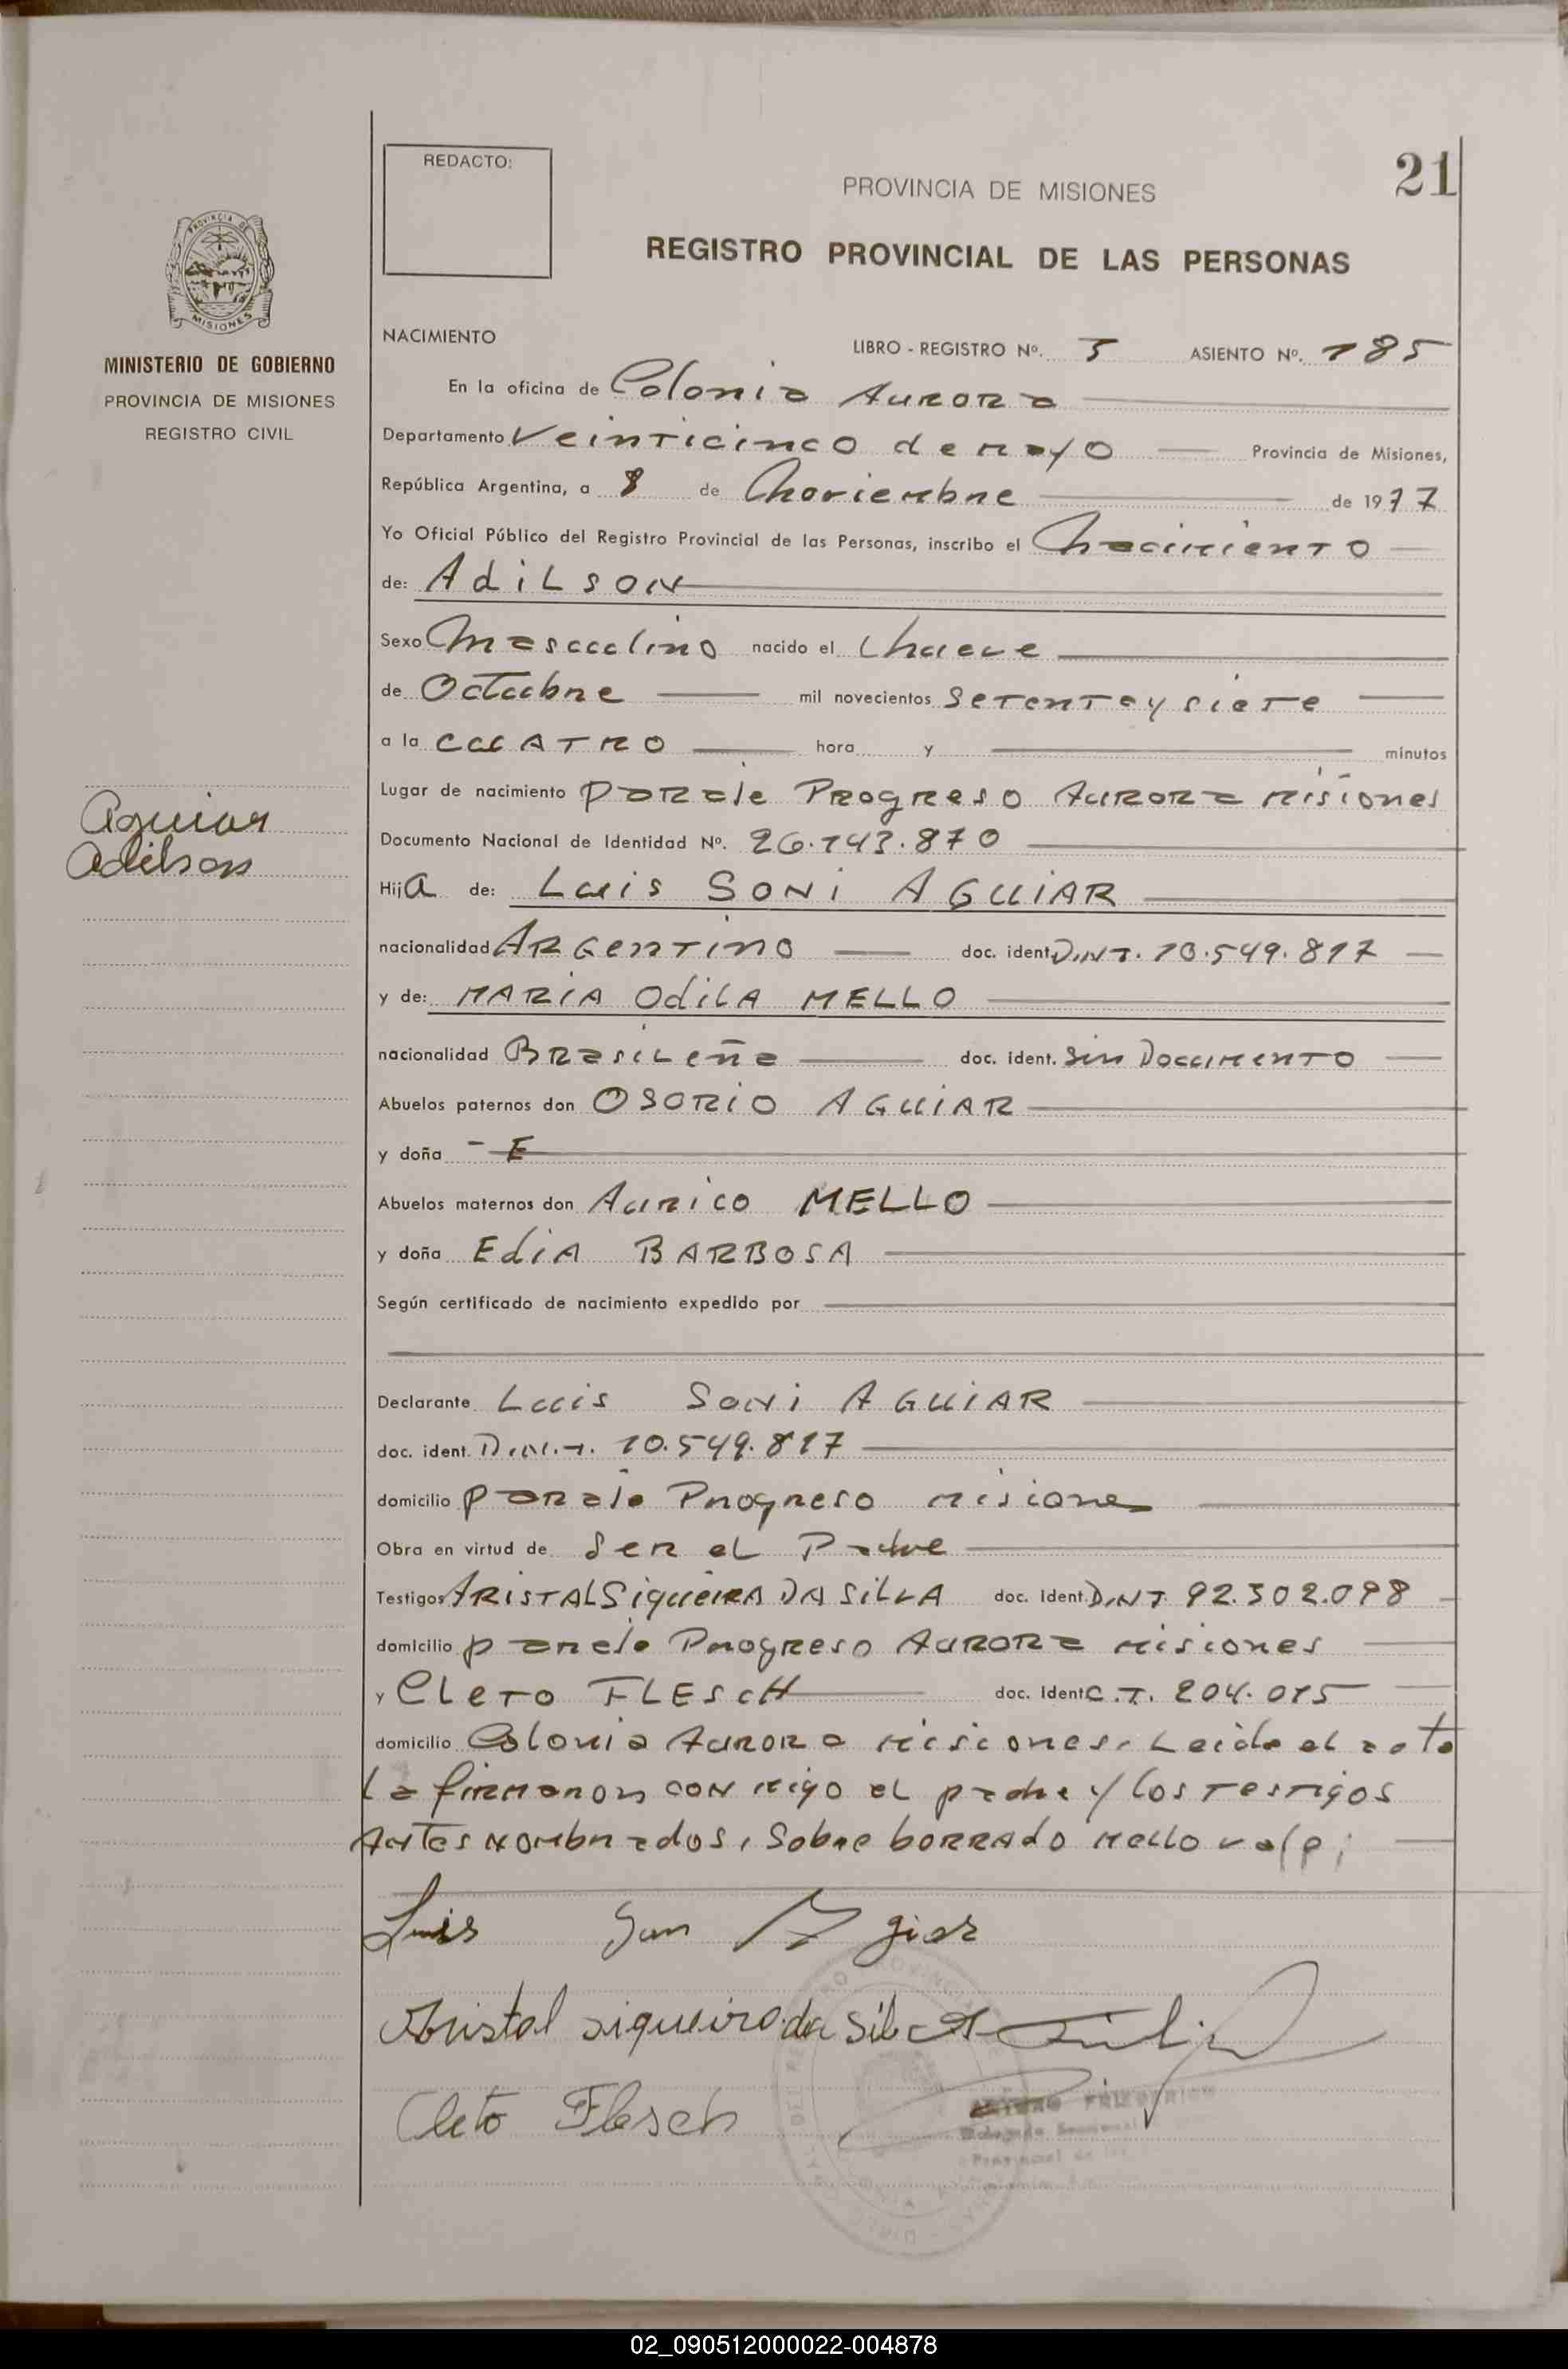 21
REDACTO:
PROVINCIA DE MISIONES
REGISTRO PROVINCIAL DE LAS PERSONAS
PROVINCIA DE
MISIONES
MINISTERIO DE GOBIERNO
PROVINCIA DE MISIONES
REGISTRO CIVIL
NACIMIENTO
LIBRO - REGISTRO Nº. 3 ASIENTO Nº. 185
En la oficina de Colonia Aurora
Departamento Veinticinco de mayo Provincia de Misiones,
República Argentina, a 8 de Noviembre de 1977
Yo Oficial Público del Registro Provincial de las Personas, inscribo el Nacimiento
de: AdiLSON
Sexo Masculino nacido el Nueve
de Octubre mil novecientos Setenta y siete
a la CUATRO hora y minutos
Lugar de nacimiento paraje Progreso Aurora misiones
Documento Nacional de Identidad Nº. 26.143.870
Aguiar
Adilson
Hija de: Luis SONi AGUiAR
nacionalidad Argentino doc. ident. D.N.I. 10.549.817
y de: MARIA OdiLA MELLO
nacionalidad Brasileña doc. ident. Sin Documento
Abuelos paternos don OSORIO AGUiAR
y doña - E
Abuelos maternos don Aurico MELLO
y doña EdiA BARBOSA
Según certificado de nacimiento expedido por
Declarante Luis SONi AGUiAR
doc. ident. D.N.I. 10.549.817
domicilio paraje Progreso misiones
Obra en virtud de Ser el Padre
Testigos ARISTAL Siqueira DA SiLVA doc. ident. D.N.I. 92.302.098
domicilio paraje Progreso Aurora misiones
y Cleto FLESCH doc. ident. C.I. 204.015
domicilio Colonia Aurora misiones. Leida el acta
La firmaron conmigo el padre y los testigos
Antes nombrados, Sobre borrado Mello vale;
Luis Son Agiar
Aristal siqueira da Silva
Cleto Flesch
02_090512000022-004878